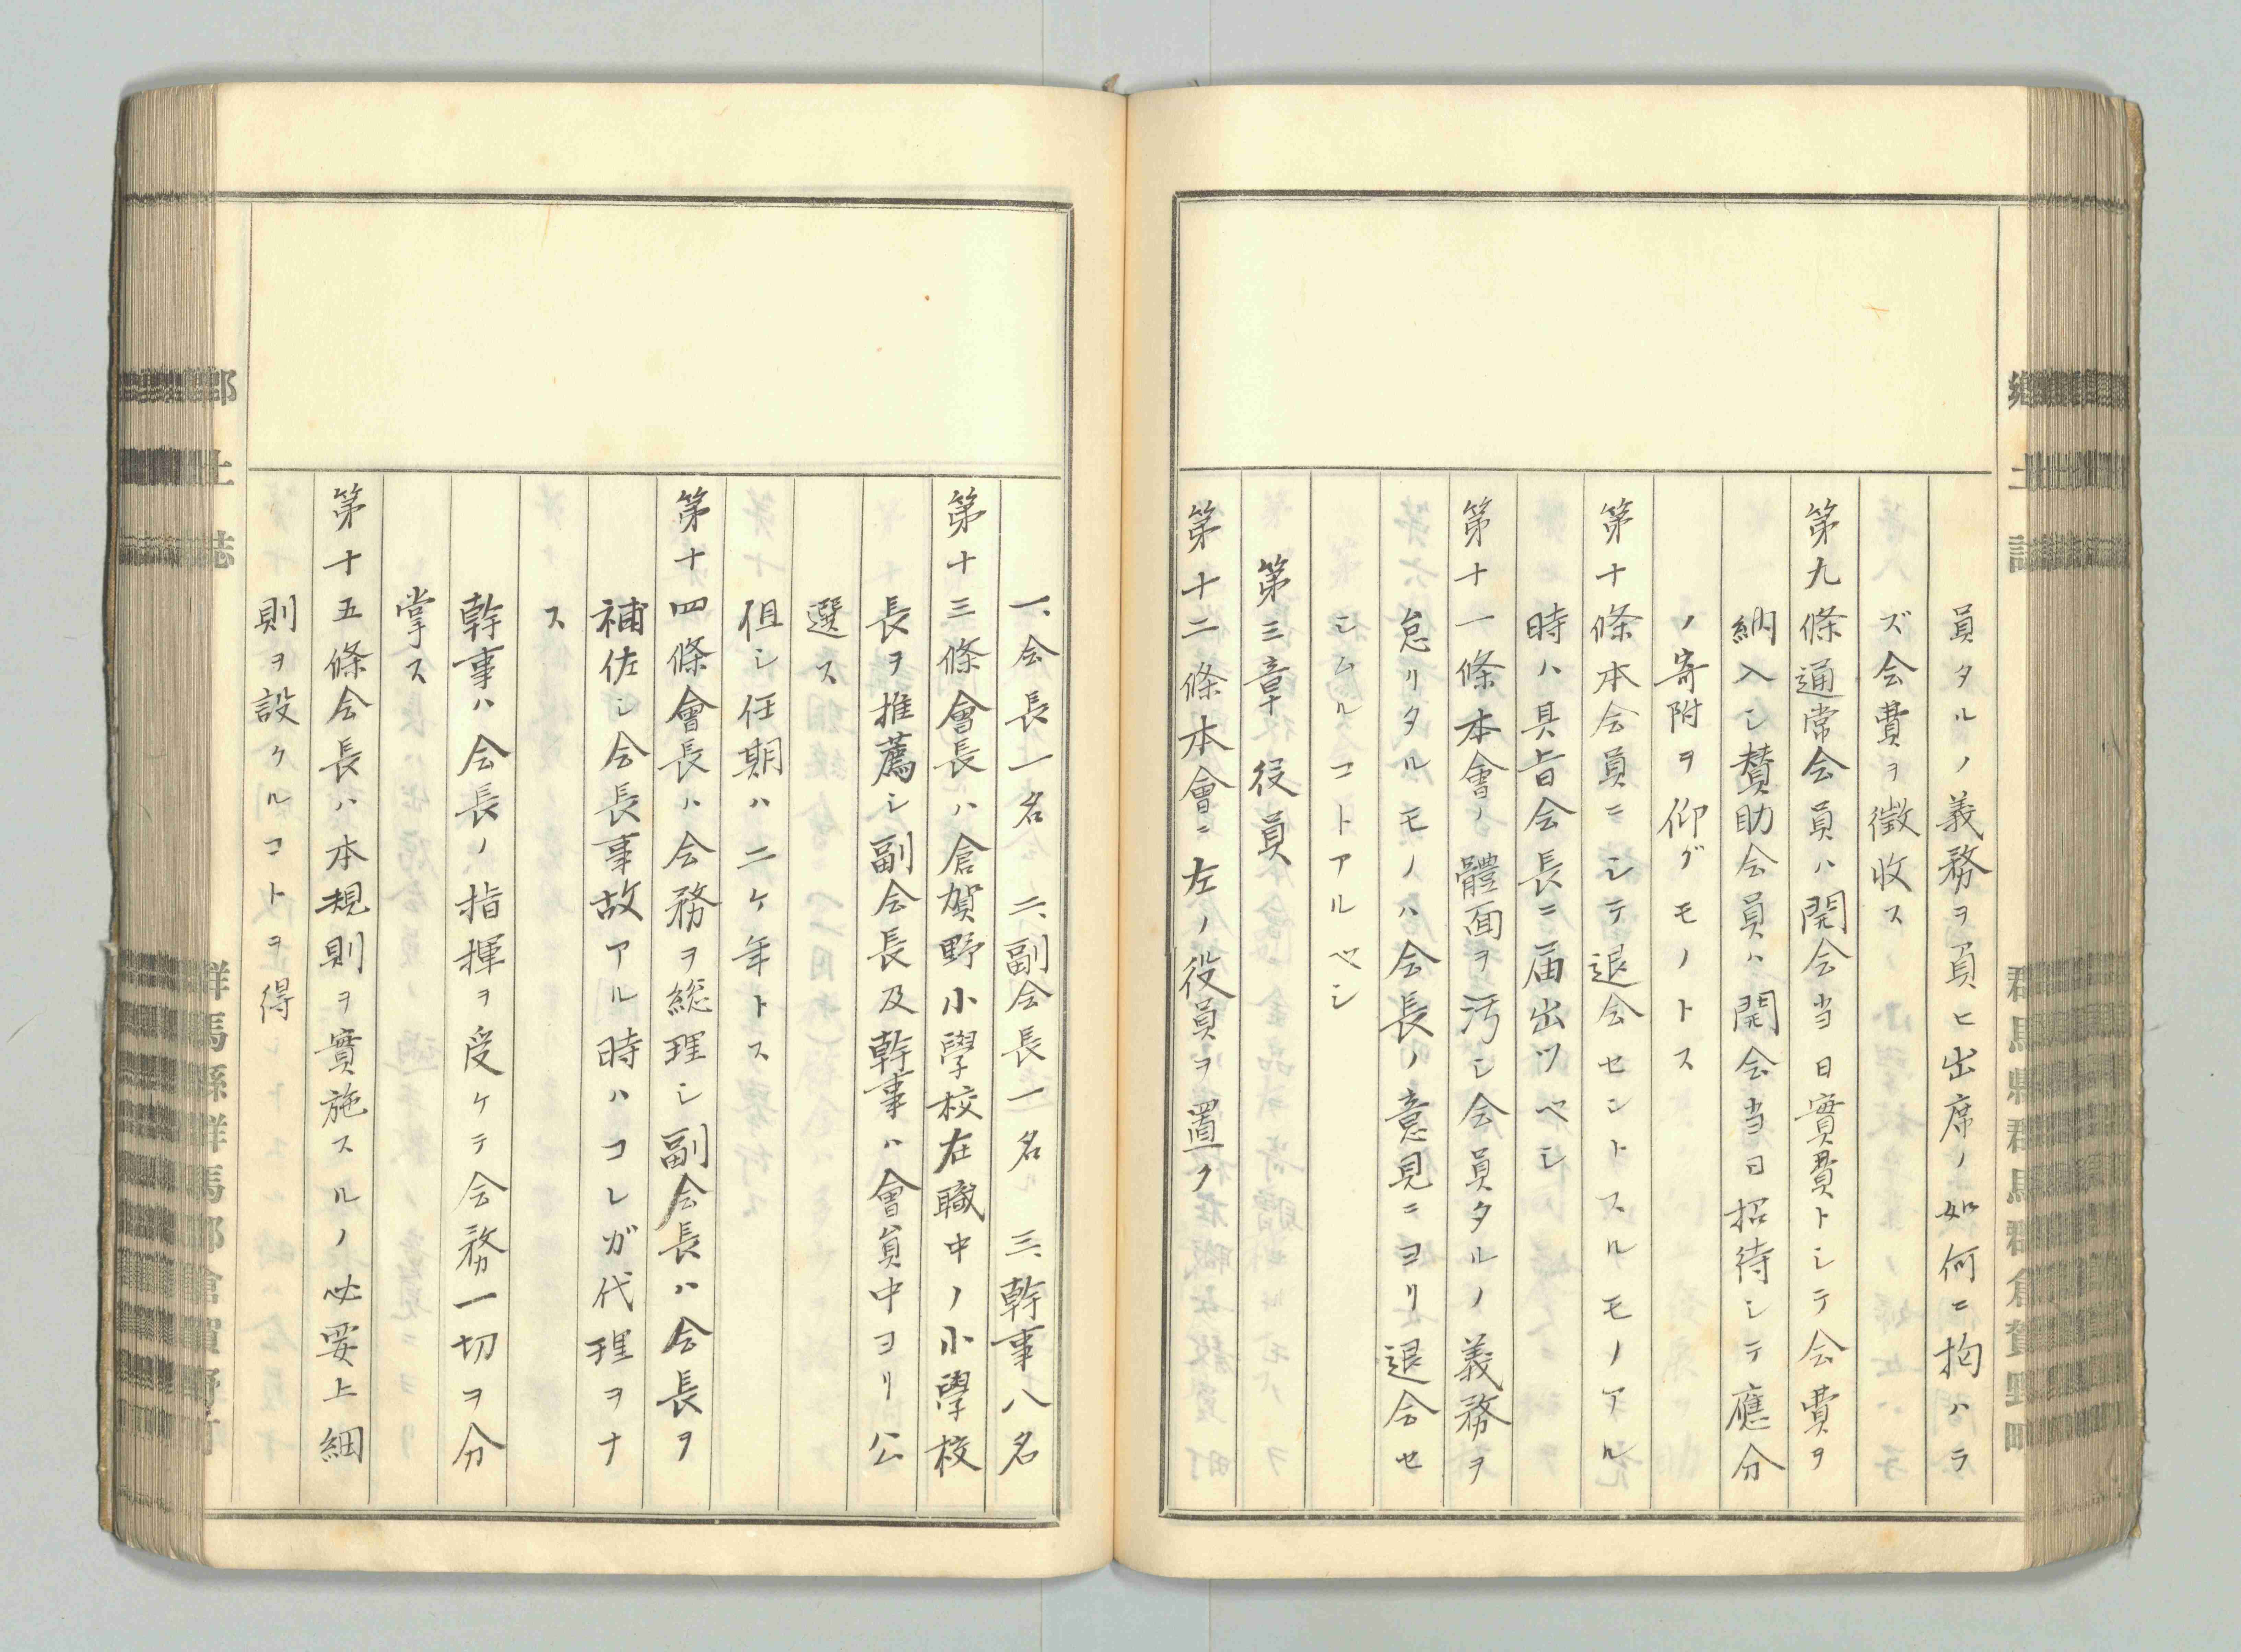 員タルノ義務ヲ負ヒ出席ノ如何ニ拘ハラ
ズ会費ヲ徴收ス
第九條通常会員ハ開会当日實費トシテ会費ヲ
納入シ賛助会員ハ開会当日招待シテ應分
ノ寄附ヲ仰グモノトス
第十條本会員ニシテ退会セントスルモノアル
時ハ具旨会長ニ届出ツベシ
第十一條本會ノ體面ヲ汚シ会員タルノ義務ヲ
怠リタルモノハ会長ノ意見ニヨリ退会セ
シムルコトアルベシ
第三章役員
第十二條本會ニ左ノ役員ヲ置ク
一、会長一名 二、副会長一名 三、幹事八名
第十三條會長ハ倉賀野小學校在職中ノ小學校
長ヲ推薦シ副会長及幹事ハ會員中ヨリ公
選ス
但シ任期ハ二ケ年トス
第十四條會長ハ会務ヲ総理シ副会長ハ会長ヲ
補佐シ会長事故アル時ハコレガ代理ヲナ
ス
幹事ハ会長ノ指揮ヲ受ケテ会務一切ヲ分
掌ス
第十五條会長ハ本規則ヲ實施スルノ必要上細
則ヲ設クルコトヲ得